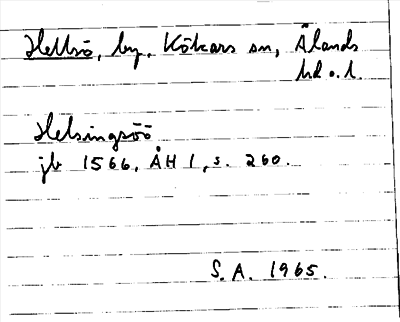 Hellsö, by, Kökars sn, Ålands
hd o. l.
Helsingsöö
jb 1566, ÅH 1, s. 260.
S. A. 1965.